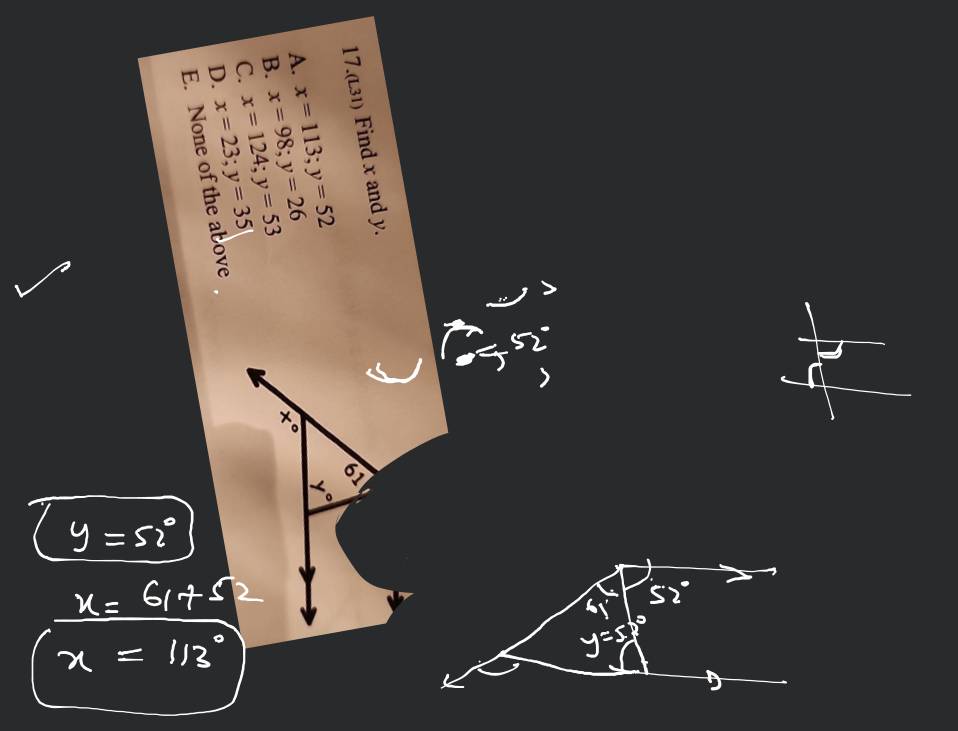 17.(L31) Find x and y.
A. x = 113; y = 52
B. x = 98; y = 26
C. x = 124; y = 53
D. x = 23; y = 35
E. None of the above
x°
y°
61
52°
61
52°
y=52°
y = 52°
x = 61+52
x = 113°